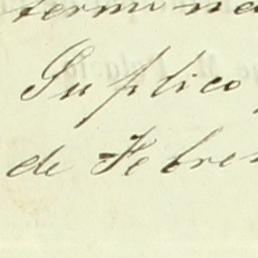 termina
Suplico
de Febre